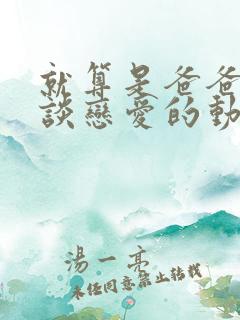 就算是爸爸
談戀愛的動
湯一亮
未經同意禁止轉載